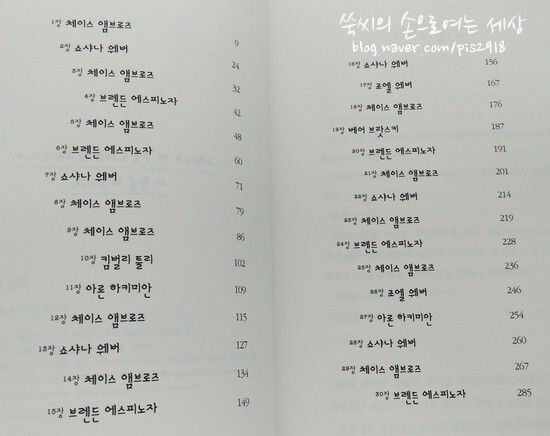 1장 체이스 앰브로즈 9
2장 쇼샤나 웨버 24
3장 체이스 앰브로즈 32
4장 브렌든 에스피노자 42
5장 체이스 앰브로즈 48
6장 브렌든 에스피노자 60
7장 쇼샤나 웨버 71
8장 체이스 앰브로즈 79
9장 체이스 앰브로즈 86
10장 킴벌리 툴리 102
11장 아론 하키미안 109
12장 체이스 앰브로즈 115
13장 쇼샤나 웨버 127
14장 체이스 앰브로즈 134
15장 브렌든 에스피노자 149
쑥씨의 손으로여는 세상
blog.naver.com/pis2918
16장 쇼샤나 웨버 156
17장 조엘 웨버 167
18장 체이스 앰브로즈 176
19장 베어 브랏스키 187
20장 브렌든 에스피노자 191
21장 체이스 앰브로즈 201
22장 쇼샤나 웨버 214
23장 체이스 앰브로즈 219
24장 브렌든 에스피노자 228
25장 체이스 앰브로즈 236
26장 조엘 웨버 246
27장 아론 하키미안 254
28장 쇼샤나 웨버 260
29장 체이스 앰브로즈 267
30장 브렌든 에스피노자 285